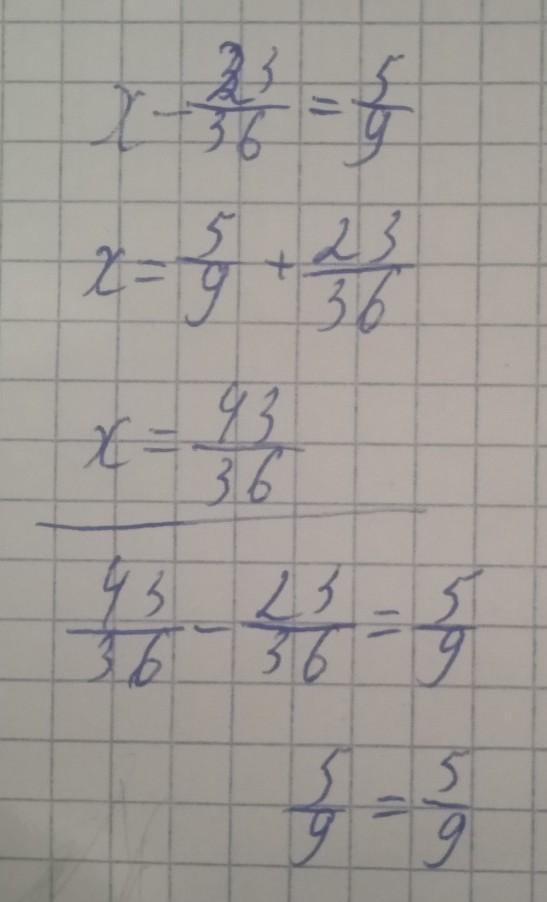 x - 23/36 = 5/9
x = 5/9 + 23/36
x = 43/36
43/36 - 23/36 = 5/9
5/9 = 5/9